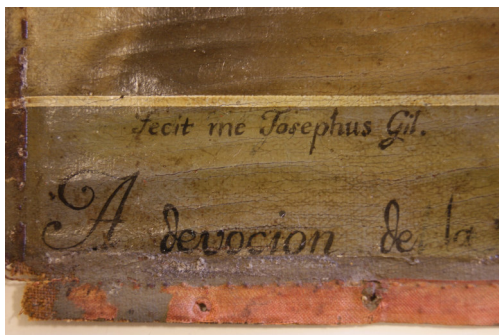 fecit me Josephus Gil.
A devocion de la